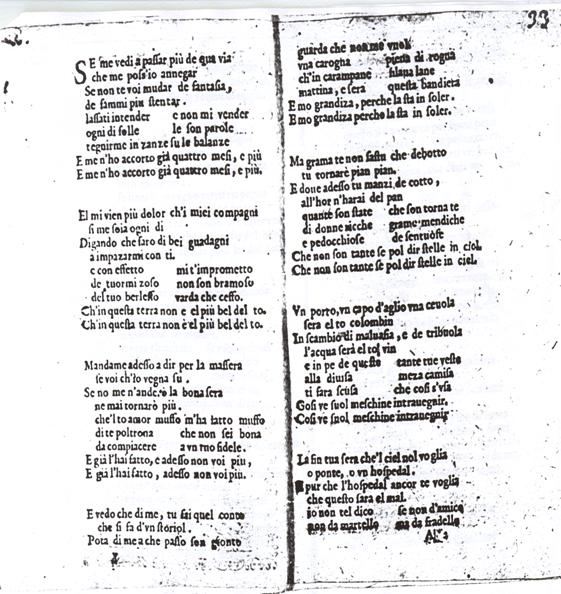 SE me vedi a passar più de qua via
che me poss'io annegar
Se non te voi mudar de fantasia,
de fammi piu stentar.
lassati intender e non mi vender
ogni di folle le son parole
tegnirme in zanze su le balanze
E me n'ho accorto già quattro mesi, e più
E me n'ho accorto già quattro mesi, e più.
El mi vien più dolor ch'i miei compagni
si me soia ogni di
Digando che faro di bei guadagni
a impazarmi con ti.
e con effetto mi t'imprometto
de tuormi zoso non son bramoso
del tuo berlesso varda che ceffo.
Ch'in questa terra non è el più bel del to.
Ch'in questa terra non è el più bel del to.
Mandame adesso a dir per la massera
se voi ch'io vegna su.
Se no me n'anderò la bona sera
ne mai tornarò più.
che'l to amor musso m'ha fatto musso
di te poltrona che non sei bona
da compiacere a un tuo fidele.
E già l'hai fatto, e adesso non voi piu,
E già l'hai fatto, adesso non voi piu.
E vedo che di me, tu fai quel conto
che si fa d'vn storiol.
Pota di me a che passo son gionto
33
guarda che non me vuol
vna carogna piena di rogna
ch'in carampane filaua lane
mattina, e sera questa bandiera
E mo grandiza, perche la sta in soler.
E mo grandiza perche la sta in soler.
Ma grama te non sastu che debotto
tu tornarè pian pian.
E doue adesso tu manzi de cotto,
all'hor n'harai del pan
quante son state che son torna te
di donne ricche grame mendiche
e pedocchiose
Che non son tante se pol dir stelle in ciel.
Che non son tante se pol dir stelle in ciel.
Vn porto, vn capo d'aglio vna ceuola
sera el to colombin
In scambio di maluasia, e de tribuola
l'acqua serà el to vin
e in pe de queste tante tue veste
alla diuisa meza camisa
ti farà scusa che cosi s'vsa
Cosi ve suol meschine intrauegnir.
Cosi ve suol meschine intrauegnir
La fin tua sera che'l ciel nol voglia
o ponte, o vn hospedal.
E pur che l'hospedal ancor te voglia
che questo sara el mal.
io non tel dico se non d'amico
non da martello ma da fradello